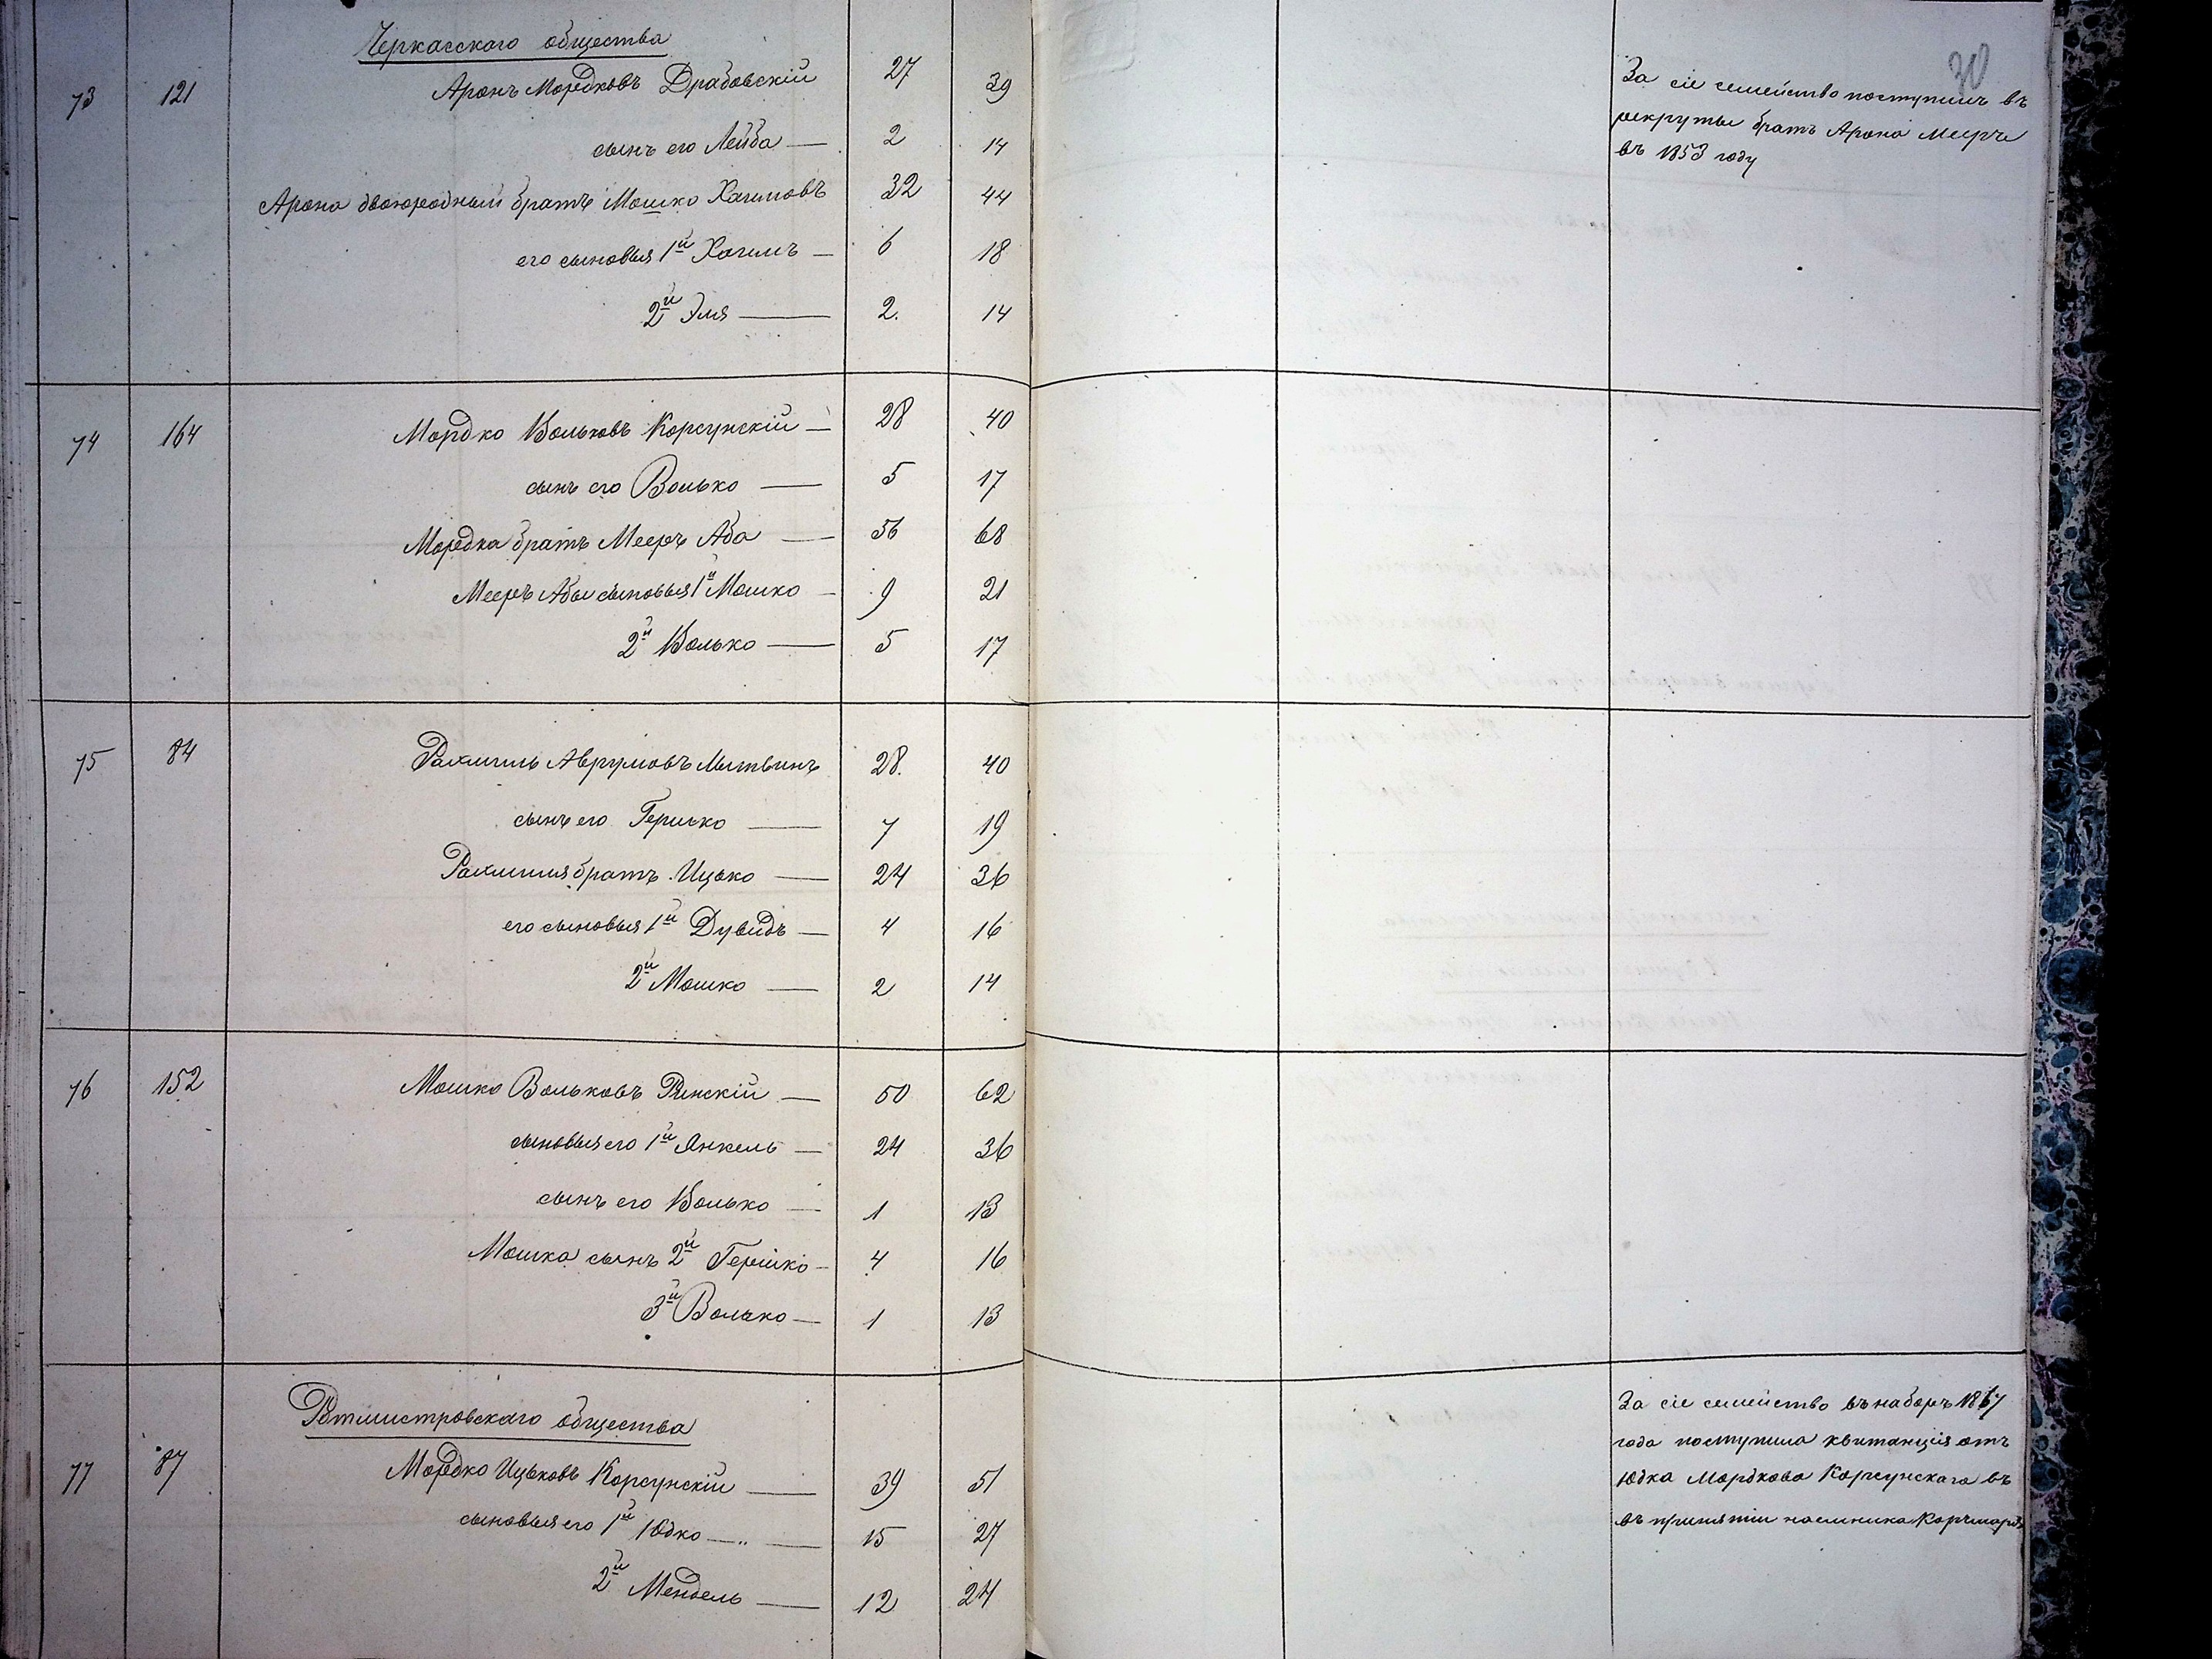 Черкасского общества
73 121 Аронъ Мордковъ Драбовскій 27 39
сынъ его Лейба — 2 14
Арона двоюродный братъ Мошко Хаимовъ 32 44
его сыновья 1й Хаимъ — 6 18
2й Эля — 2. 14
74 164 Мордко Вольковъ Корсунскій — 28 40
сынъ его Волько — 5 17
Мордка братъ Мееръ Аба — 56 68
Мееръ Абы сыновья 1й Мошко — 9 21
2й Волько — 5 17
75 84 Рахмиль Аврумовъ Литвинъ 28. 40
сынъ его Гершко — 7 19
Рахмиля братъ Ицько — 24 36
его сыновья 1й Дувидъ — 4 16
2й Мошко — 2 14
76 152 Мошко Вольковъ Ринскій — 50 62
сыновья его 1й Янкель — 24 36
сынъ его Волько — 1 13
Мошка сынъ 2й Гершко — 4 16
3й Волько — 1 13
Ротмистровскаго общества
77 87 Мордко Ицьковъ Корсунскій — 39 51
сыновья его 1й Юдко — „ — 15 27
2й Мендель — 12 24
30
За сіе семейство поступилъ въ
рекруты братъ Арона Мееръ
въ 1853 году
За сіе семейство въ наборъ 1867
года поступила квитанція отъ
Юдка Мордкова Корсунскаго въ
въ принятіи наемника